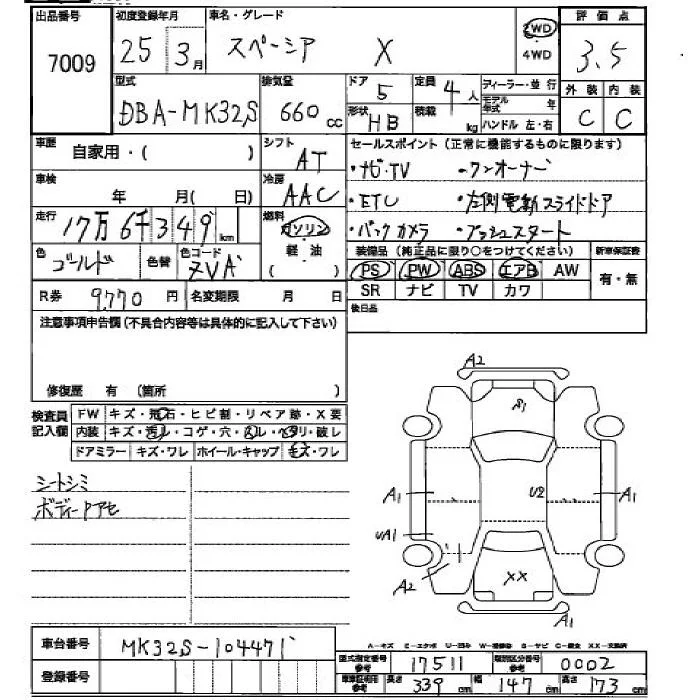 出品番号 初度登録年月 車名・グレード 評価点
7009 25 3月 スペーシア X 2WD ・4WD 3.5
型式 排気量 ドア 定員 ディーラー・並行 外装 内装
DBA-MK32S 660cc 5 4人 モデル年式 年 C C
形状 HB 積載 kg ハンドル 左・右
車歴 自家用・( ) シフト AT セールスポイント(正常に機能するものに限ります)
・ナビ・TV ・ワンオーナー
車検 年 月(日) 冷房 AAC ・ETC ・左側電動スライドドア
走行 17万6千349km 燃料 ガソリン 軽油 ( ) ・バックカメラ ・プッシュスタート
色 ゴールド 色替 色コード ZVA 装備品(純正品に限り○をつけてください) 新車保証書
PS PW ABS エアB AW 有・無
R券 9,770円 名変期限 月 日 SR ナビ TV カワ
注意事項申告欄(不具合内容等は具体的に記入して下さい) 後日品
修復歴 有 (箇所 )
検査員記入欄 FW キズ・飛石・ヒビ割・リペア跡・X要
内装 キズ・汚レ・コゲ・穴・スレ・ヘタリ・破レ
ドアミラー キズ・ワレ ホイール・キャップ キズ・ワレ
シートシミ
ボディーアセ
A2
S1
A1 U2 A1
UA1
A2 XX
A1
車台番号 MK32S-104471
A-キズ E-エクボ U-凹み W-補修跡 S-サビ C-腐食 XX-交換済
登録番号 型式指定番号 参考 17511 類別区分番号 参考 0002
車庫証明用 参考 長さ 339cm 幅 147cm 高さ 173cm